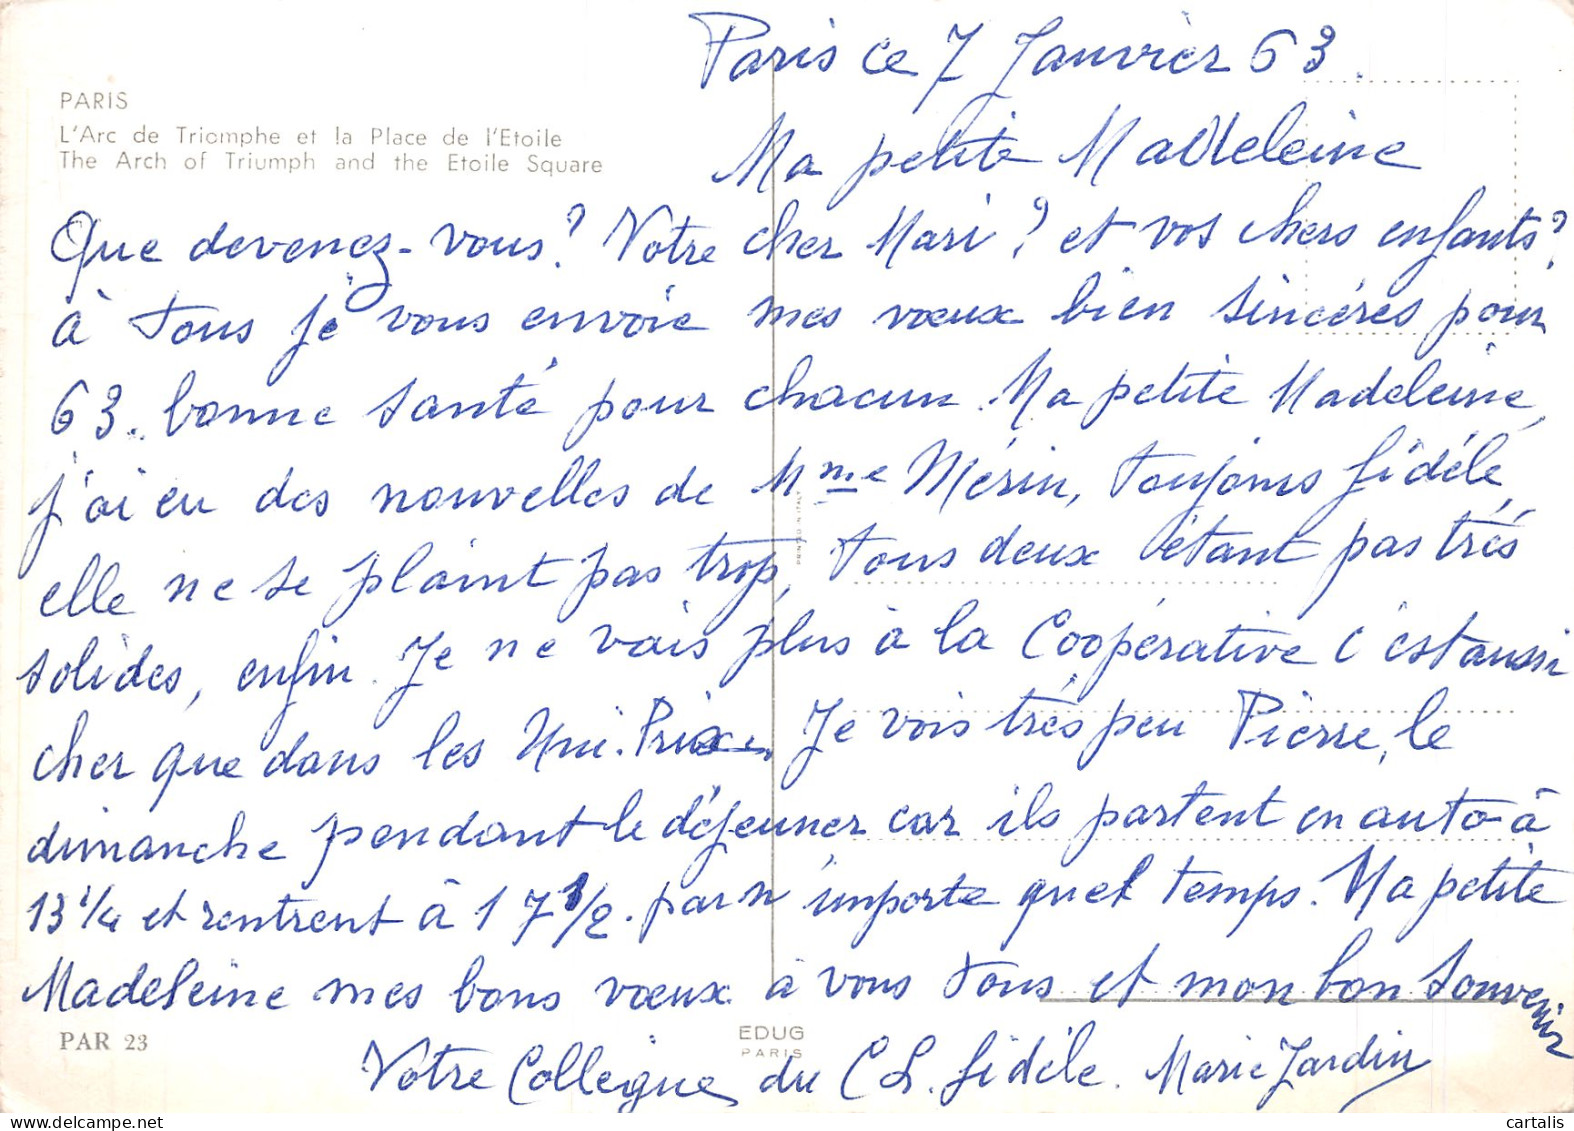 Paris ce 7 Janvier 63.
PARIS
L'Arc de Triomphe et la Place de l'Etoile
The Arch of Triumph and the Etoile Square
Ma petite Madeleine
Que devenez-vous? Votre cher Mari? et vos chers enfants?
à tous je vous envoie mes vœux bien sincères pour
63. bonne santé pour chacun. Ma petite Madeleine,
j'ai eu des nouvelles de Mme Mérin, toujours fidèle,
elle ne se plaint pas trop, tous deux étant pas très
solides, enfin. Je ne vais plus à la Coopérative c'est aussi
cher que dans les Uni-Prix. Je vois très peu Pierre, le
dimanche pendant le déjeuner car ils partent en auto à
13 1/4 et rentrent à 17 1/2. par n'importe quel temps. Ma petite
Madeleine mes bons vœux à vous tous et mon bon souvenir
PAR 23
EDUG
PARIS
Votre Collègue du C L. fidèle. Marie Jardin
cartalis